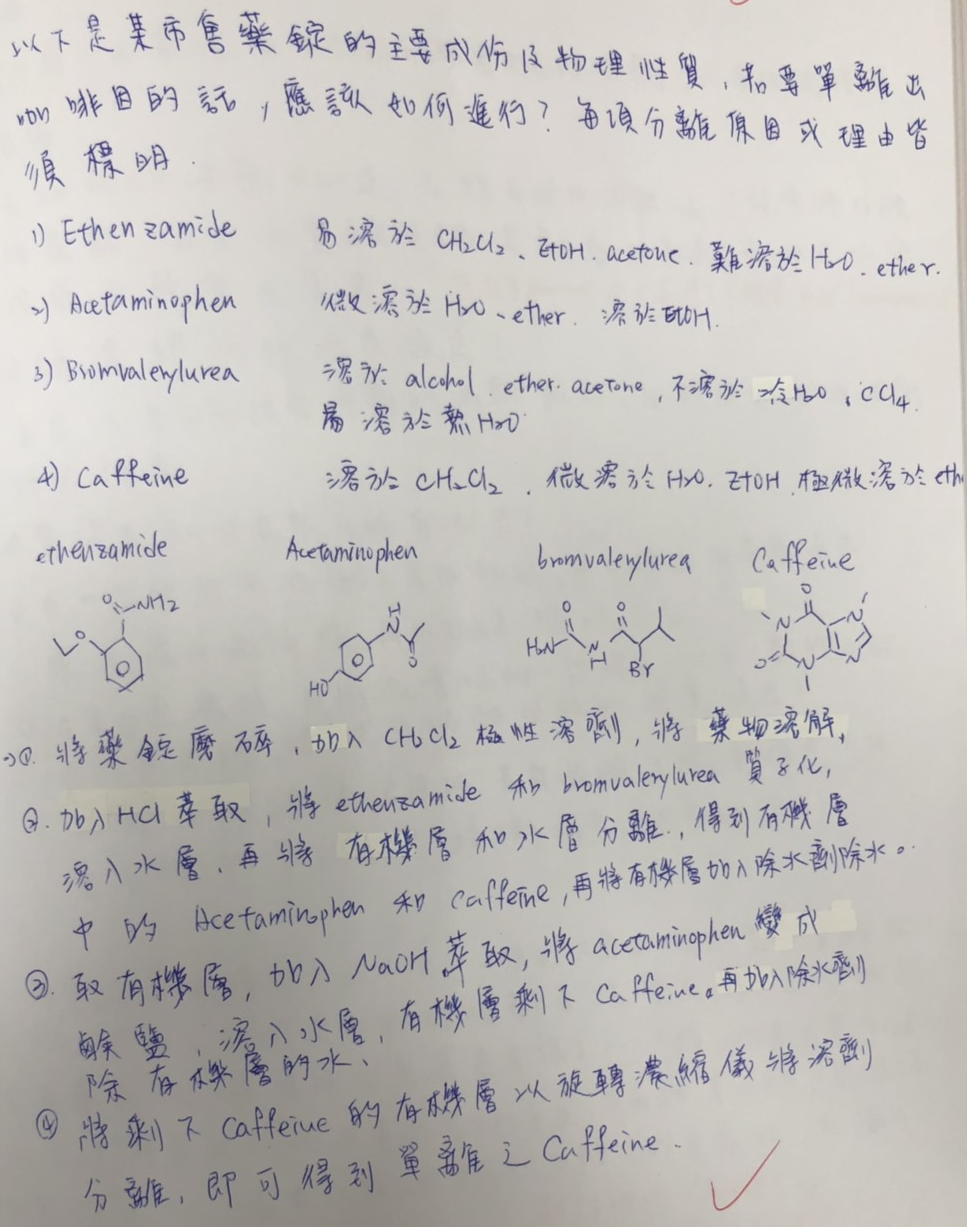 以下是某市售藥錠的主要成份及物理性質,若要單離出
咖啡因的話,應該如何進行?每項分離原因或理由皆
須標明.
1) Ethenzamide 易溶於 CH2Cl2、EtOH. acetone. 難溶於 H2O. ether.
2) Acetaminophen 微溶於 H2O、ether. 溶於 EtOH.
3) Bromvalerylurea 溶於 alcohol. ether. acetone, 不溶於冷H2O, CCl4.
易溶於熱H2O
4) Caffeine 溶於 CH2Cl2. 微溶於 H2O. EtOH. 極微溶於 eth
ethenzamide Acetaminophen bromvalerylurea Caffeine
O NH2 O
H N O HO
O O H2N N H Br
O N N O N N
①. 將藥錠磨碎,加入 CH2Cl2 極性溶劑,將藥物溶解,
②. 加入 HCl 萃取,將 ethenzamide 和 bromvalerylurea 質子化,
溶入水層,再將有機層和水層分離.,得到有機層
中的 Acetaminophen 和 Caffeine,再將有機層加入除水劑除水。
③. 取有機層,加入 NaOH 萃取,將 acetaminophen 變成
鹼鹽,溶入水層,有機層剩下 Caffeine。再加入除水劑
除有機層的水、
④ 將剩下 Caffeine 的有機層以旋轉濃縮儀將溶劑
分離,即可得到單離之 Caffeine.